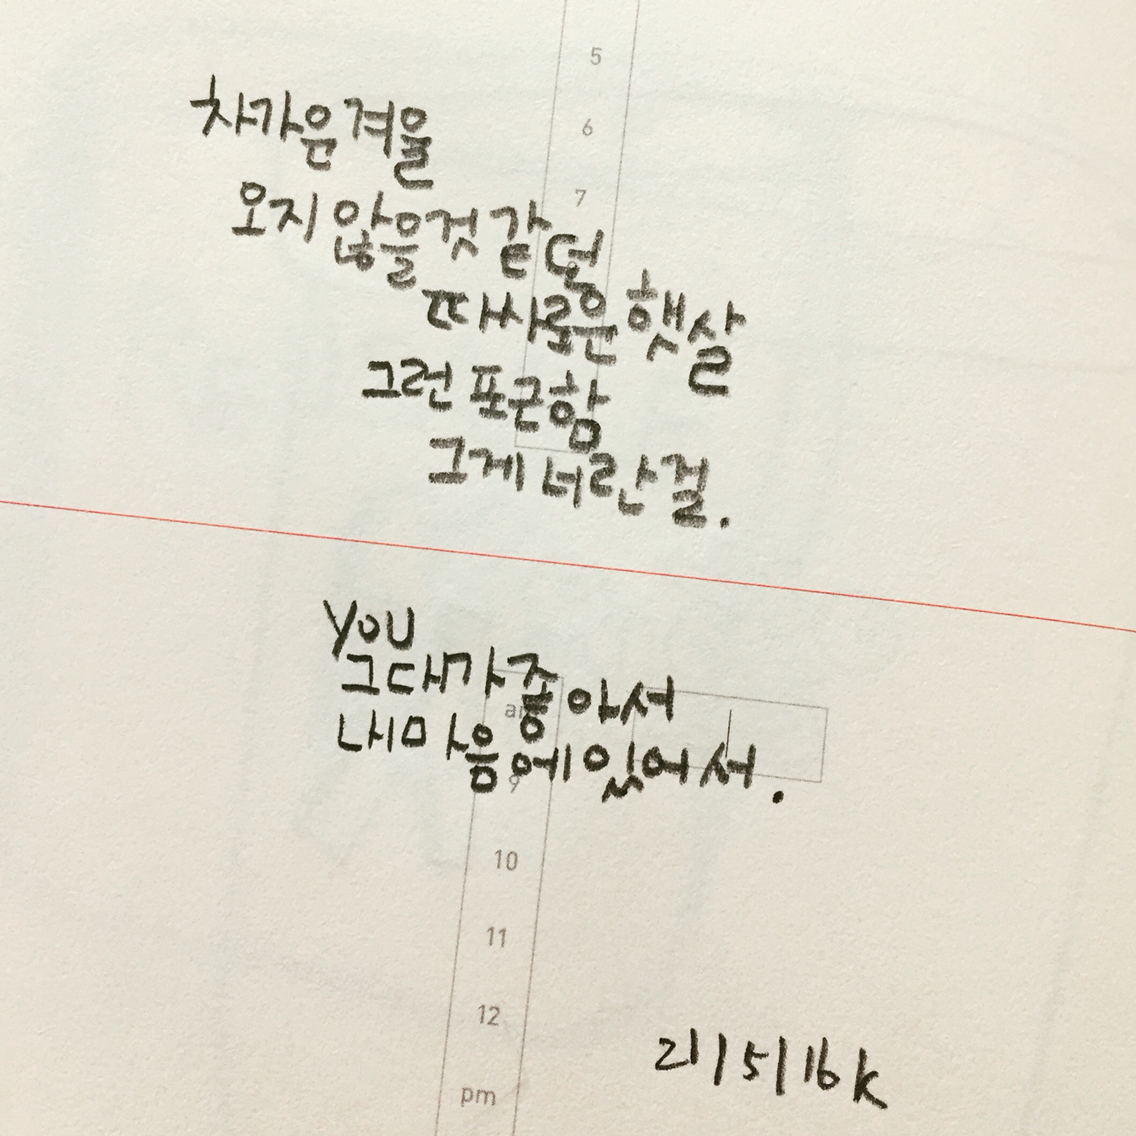 5
6
7
차가운 겨울
오지 않을것 같던
따사로운 햇살
그런 포근함
그게 너란 걸.
you
그대가 좋아서
내마음에 있어서.
9
10
11
12
pm
21/5/16 k